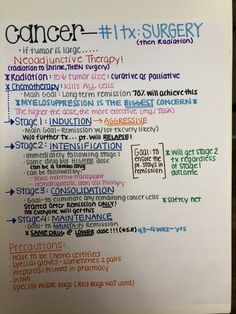 cancer - #1 tx: SURGERY
(then Radiation)
• if tumor is large.....
Neoadjunctive Therapy!
(radiation to shrink, THEN surgery)
* Radiation: to ↓ tumor size : curative or palliative
* Chemotherapy: Kills ALL cells
• Goal: Long term remission 70% will achieve this
* MYELOSUPPRESSION IS THE BIGGEST CONCERN *
The higher the dose, the more effective (mg/TBSA)
Stage 1: INDUCTION → AGGRESSIVE
• Main Goal - Remission w/1st tx (very likely)
w/o further Tx... pt. will RELAPSE!
Stage 2: INTENSIFICATION
• Immediately following stage 1
• Same drug but HIGHER dose
• can be a combo drug
• can be followed by:
• Bone marrow transplant
• Hematopoietic stem cell Therapy
Goal: to ensure the pt. stays in remission
* will get stage 2 tx regardless of stage 1 outcome
Stage 3: CONSOLIDATION
• Goal: to eliminate any remaining cancer cells
Started after Remission ONLY!
• Not everyone will get this
* safety net
Stage 4: MAINTENANCE
• Goal: to MAINTAIN Remission
* SAME DRUG @ LOWER dose!!!
Precautions:
• Have to be chemo certified
• Special gloves - sometimes 2 pairs
• Prepared/Primed in pharmacy
• Gown
• Special waste bags (Red Bags NOT used)